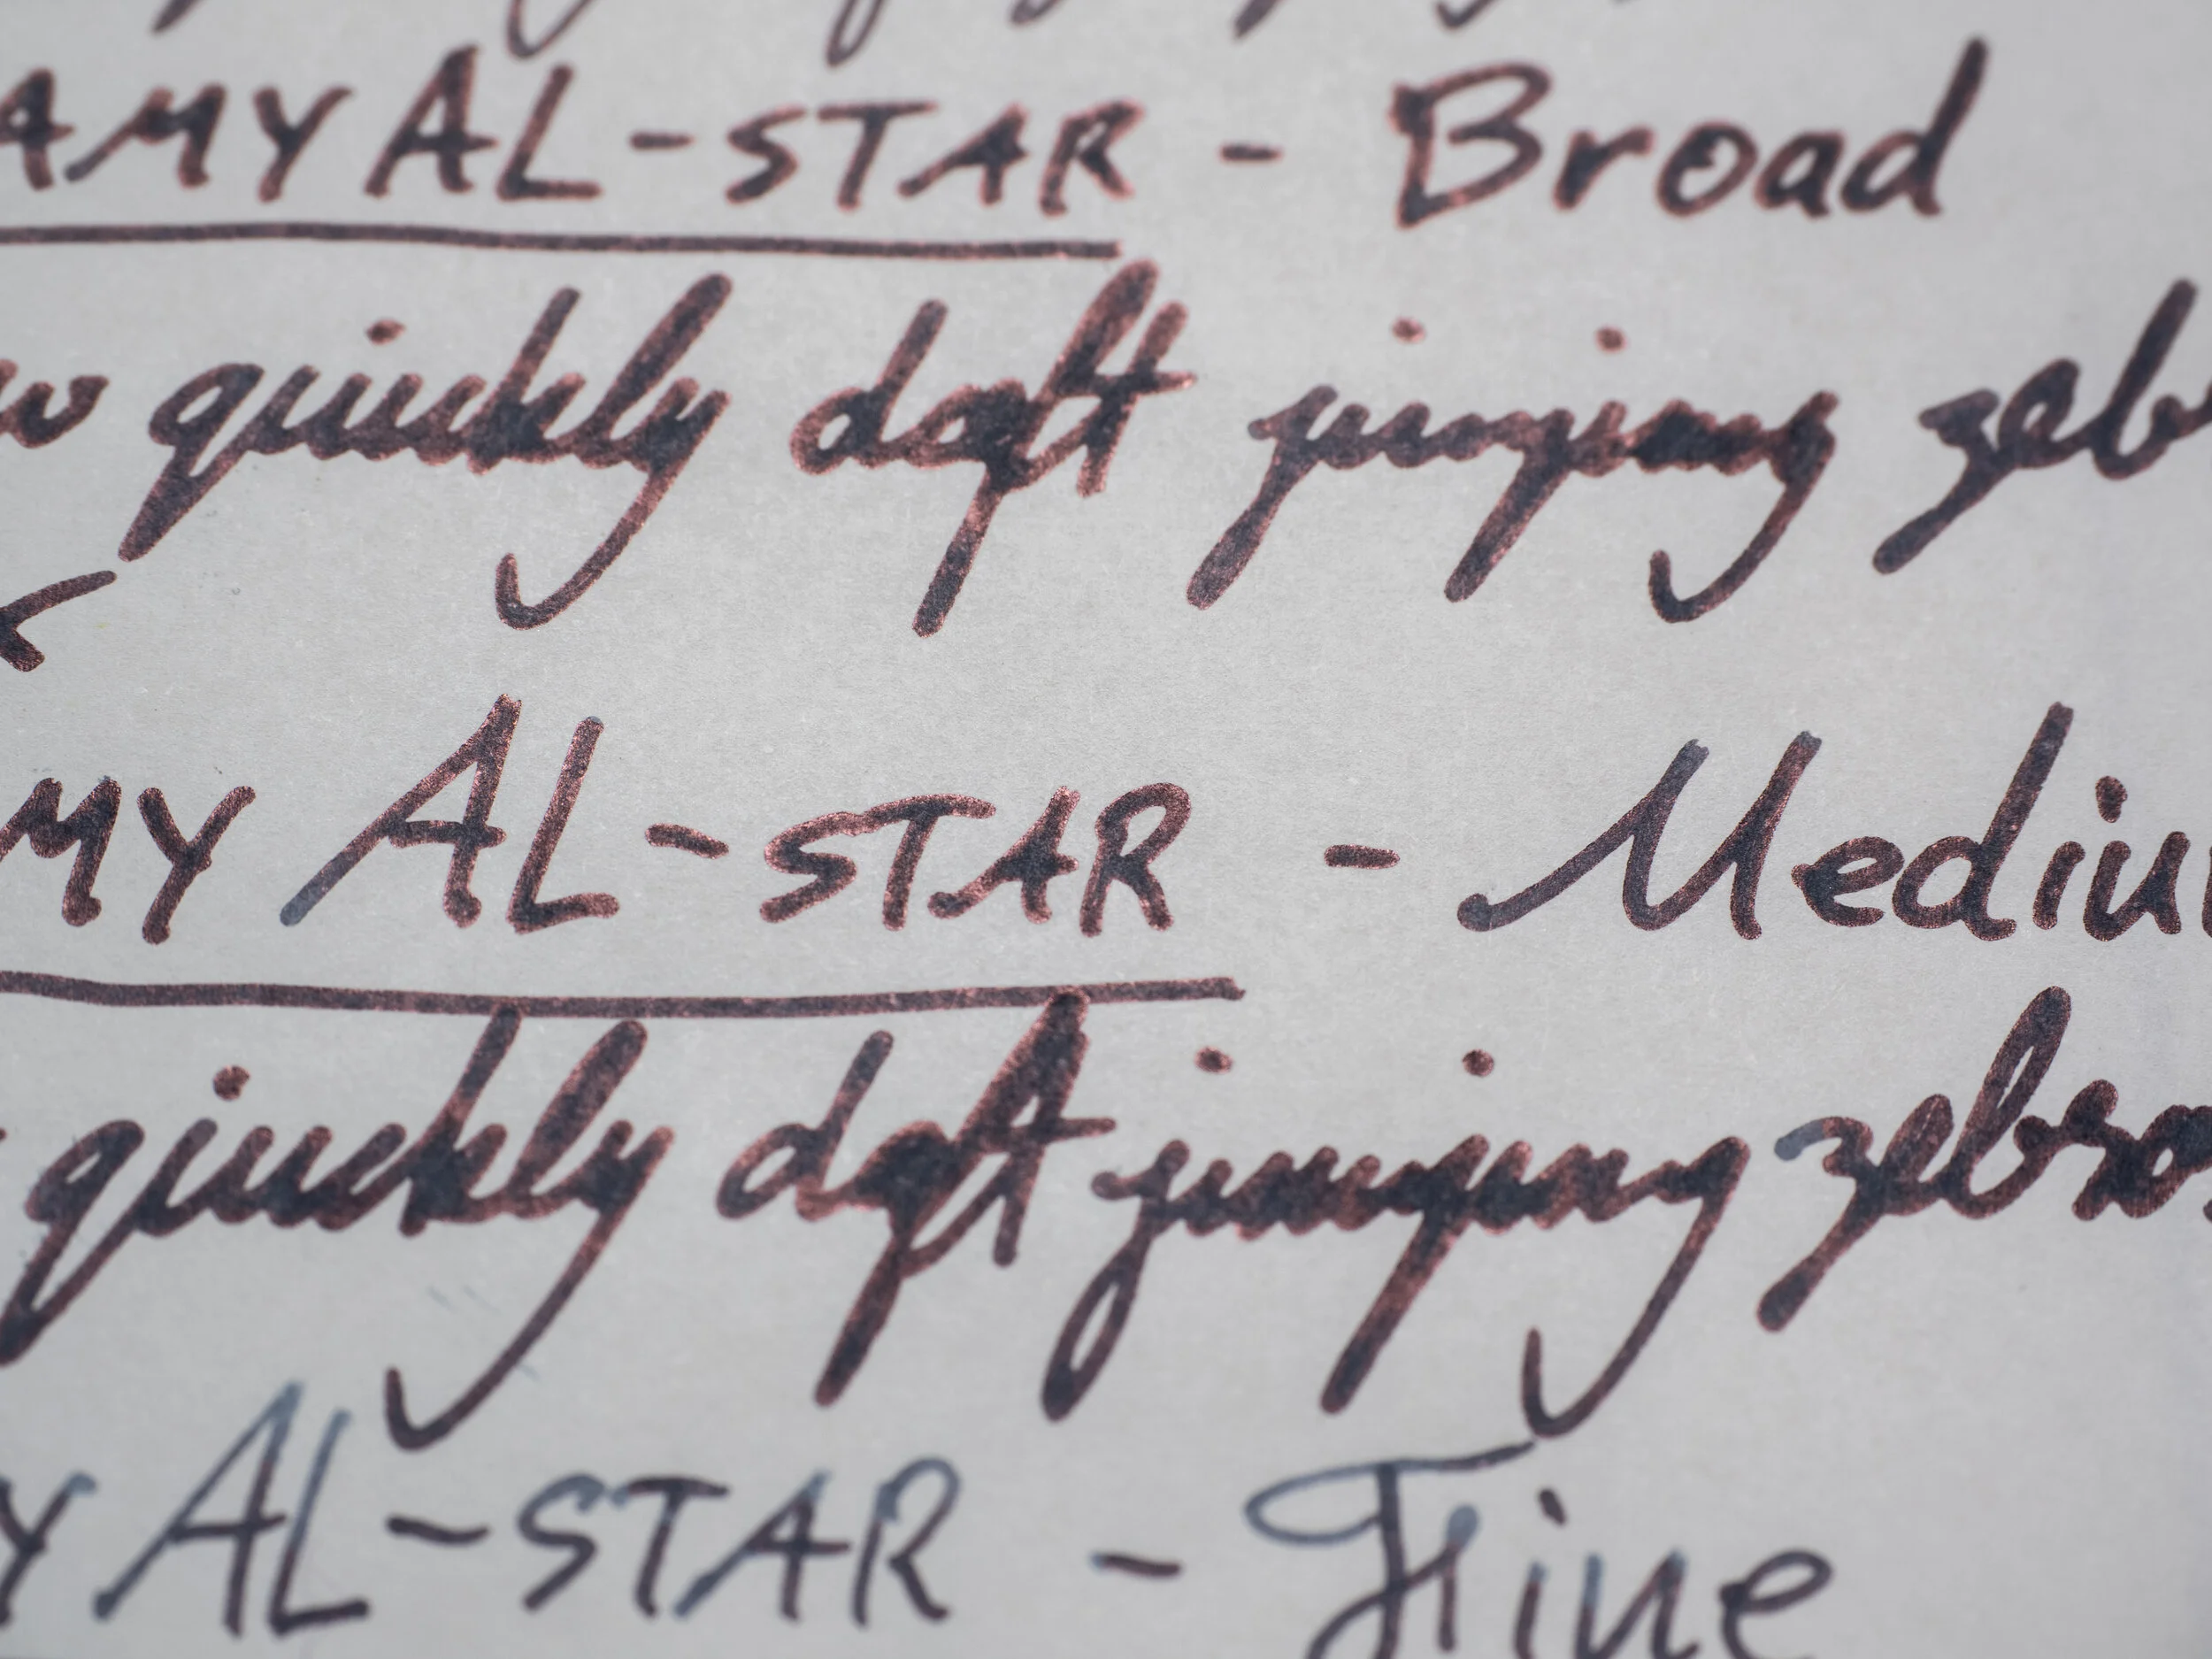 AMY AL-STAR - Broad
w quickly daft jumping zeb
MY AL-STAR - Mediu
quickly daft jumping zebra
Y AL-STAR - Fine